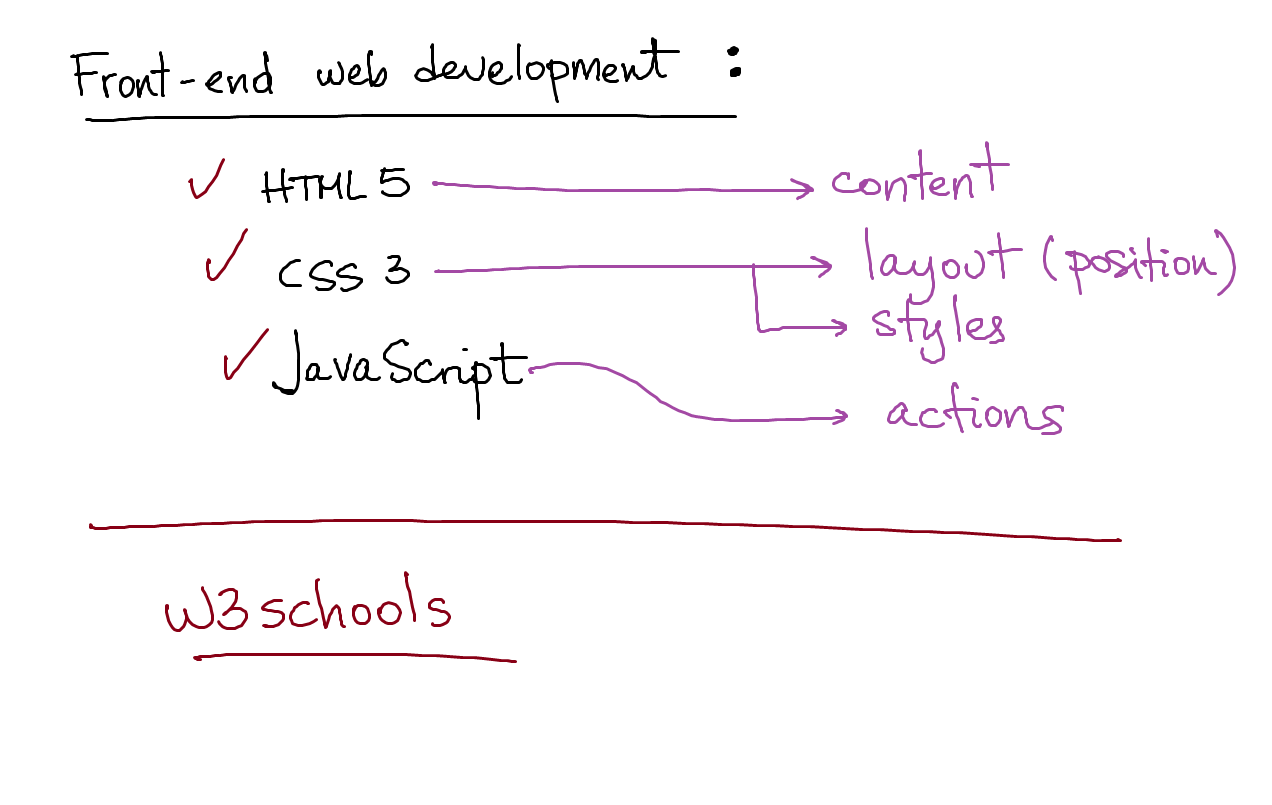 Front-end web development :
✓ HTML 5 → content
✓ CSS 3 → layout (position)
→ styles
✓ JavaScript → actions
w3schools